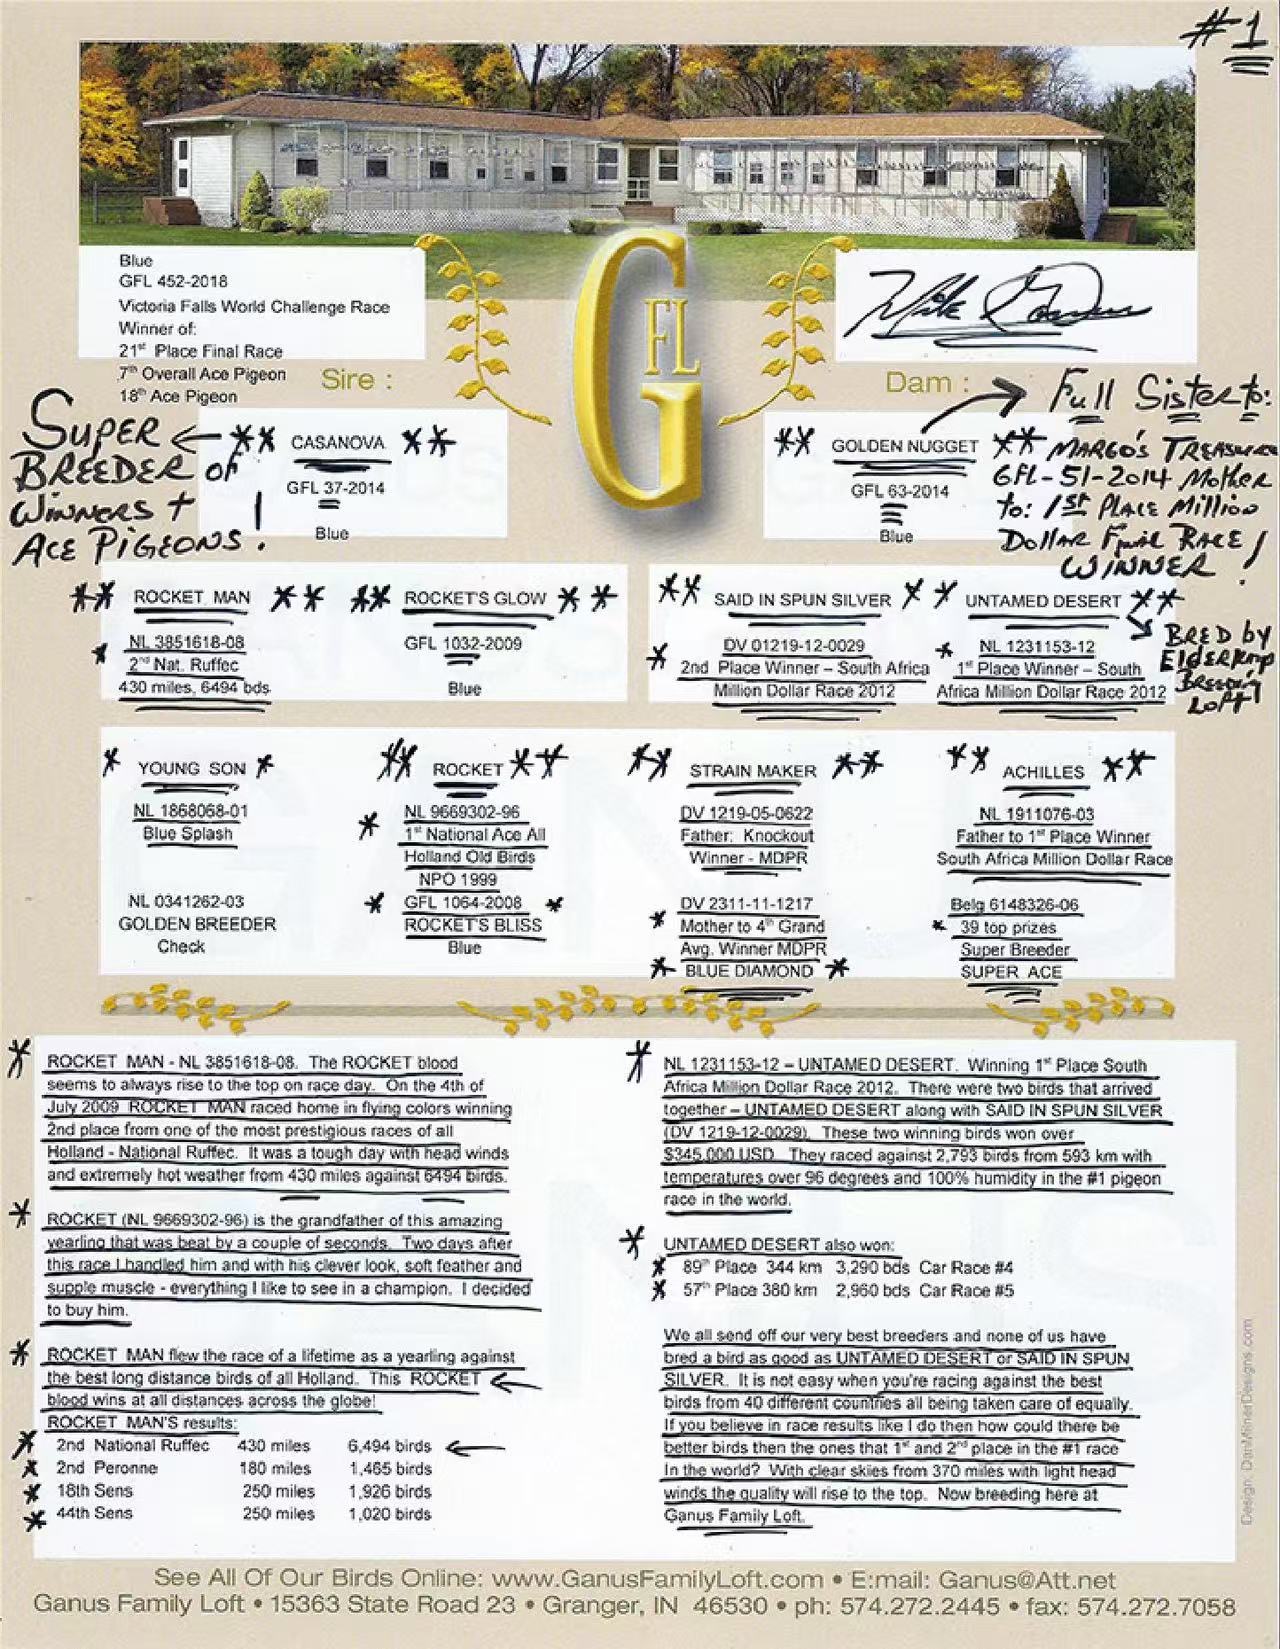 #1
Blue
GFL 452-2018
Victoria Falls World Challenge Race
Winner of:
21st Place Final Race
7th Overall Ace Pigeon
18th Ace Pigeon
Sire :
GFL
Mike Ganus
Dam :
SUPER BREEDER OF WINNERS + ACE PIGEONS!
** CASANOVA **
GFL 37-2014
Blue
** GOLDEN NUGGET **
GFL 63-2014
Blue
Full Sister to:
MARGO'S TREASURE
GFL-51-2014 Mother
to: 1st PLACE Million
Dollar Final RACE
WINNER!
** ROCKET MAN **
* NL 3851618-08
2nd Nat. Ruffec
430 miles, 6494 bds
** ROCKET'S GLOW **
GFL 1032-2009
Blue
** SAID IN SPUN SILVER *
DV 01219-12-0029
* 2nd Place Winner – South Africa
Million Dollar Race 2012
* UNTAMED DESERT **
* NL 1231153-12
1st Place Winner – South
Africa Million Dollar Race 2012
BRED by
Elderkamp
BREEDING
LOFT
* YOUNG SON *
NL 1868068-01
Blue Splash
NL 0341262-03
GOLDEN BREEDER
Check
** ROCKET **
NL 9669302-96
* 1st National Ace All
Holland Old Birds
NPO 1999
* GFL 1064-2008 *
ROCKET'S BLISS
Blue
** STRAIN MAKER **
DV 1219-05-0622
Father: Knockout
Winner - MDPR
DV 2311-11-1217
* Mother to 4th Grand
Avg. Winner MDPR
* BLUE DIAMOND *
** ACHILLES **
NL 1911076-03
Father to 1st Place Winner
South Africa Million Dollar Race
Belg 6148326-06
* 39 top prizes
Super Breeder
SUPER ACE
* ROCKET MAN - NL 3851618-08. The ROCKET blood
seems to always rise to the top on race day. On the 4th of
July 2009 ROCKET MAN raced home in flying colors winning
2nd place from one of the most prestigious races of all
Holland - National Ruffec. It was a tough day with head winds
and extremely hot weather from 430 miles against 6494 birds.
* ROCKET (NL 9669302-96) is the grandfather of this amazing
yearling that was beat by a couple of seconds. Two days after
this race I handled him and with his clever look, soft feather and
supple muscle - everything I like to see in a champion. I decided
to buy him.
* ROCKET MAN flew the race of a lifetime as a yearling against
the best long distance birds of all Holland. This ROCKET
blood wins at all distances across the globe!
ROCKET MAN'S results:
* 2nd National Ruffec 430 miles 6,494 birds
* 2nd Peronne 180 miles 1,465 birds
* 18th Sens 250 miles 1,926 birds
* 44th Sens 250 miles 1,020 birds
* NL 1231153-12 – UNTAMED DESERT. Winning 1st Place South
Africa Million Dollar Race 2012. There were two birds that arrived
together – UNTAMED DESERT along with SAID IN SPUN SILVER
(DV 1219-12-0029). These two winning birds won over
$345,000 USD. They raced against 2,793 birds from 593 km with
temperatures over 96 degrees and 100% humidity in the #1 pigeon
race in the world.
* UNTAMED DESERT also won:
* 89th Place 344 km 3,290 bds Car Race #4
* 57th Place 380 km 2,960 bds Car Race #5
We all send off our very best breeders and none of us have
bred a bird as good as UNTAMED DESERT or SAID IN SPUN
SILVER. It is not easy when you're racing against the best
birds from 40 different countries all being taken care of equally.
If you believe in race results like I do then how could there be
better birds then the ones that 1st and 2nd place in the #1 race
In the world? With clear skies from 370 miles with light head
winds the quality will rise to the top. Now breeding here at
Ganus Family Loft.
Design: DanMilnerDesigns.com
See All Of Our Birds Online: www.GanusFamilyLoft.com • E:mail: Ganus@Att.net
Ganus Family Loft • 15363 State Road 23 • Granger, IN 46530 • ph: 574.272.2445 • fax: 574.272.7058